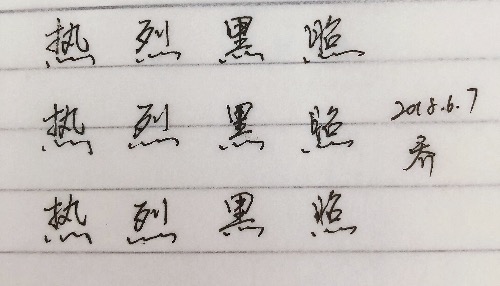 热 烈 黑 照
热 烈 黑 照
2018.6.7
热 烈 黑 照